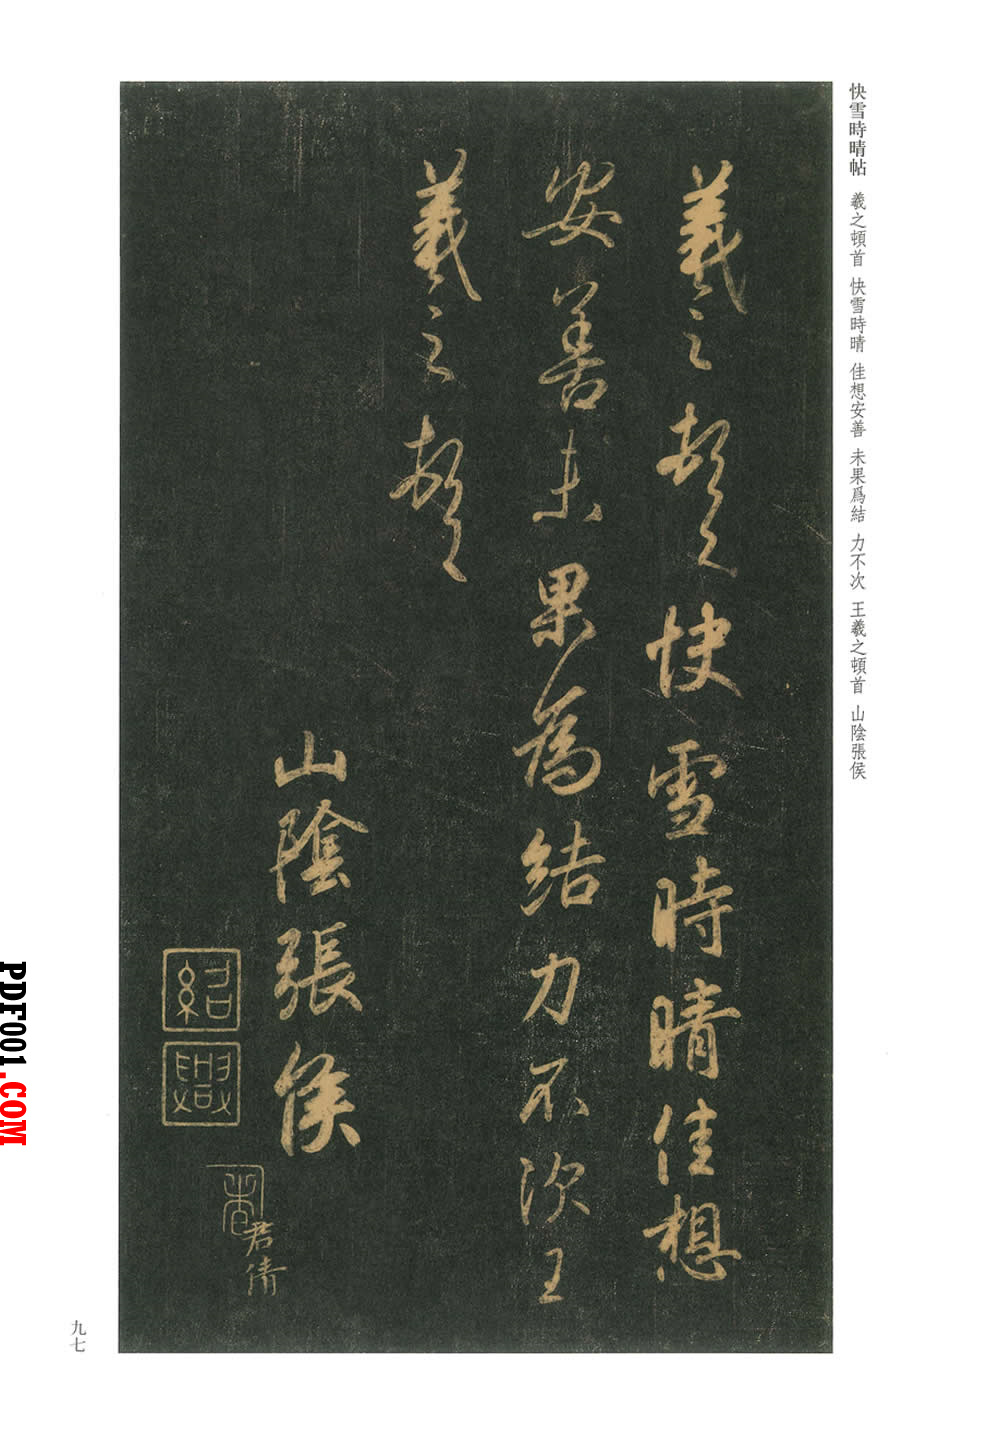 快雪時晴帖 羲之頓首 快雪時晴 佳想安善 未果爲結 力不次 王羲之頓首 山陰張侯
羲之頓首快雪時晴佳想
安善未果為結力不次王
羲之頓首
山陰張侯
紹
興
君倩
九七
PDF001.COM